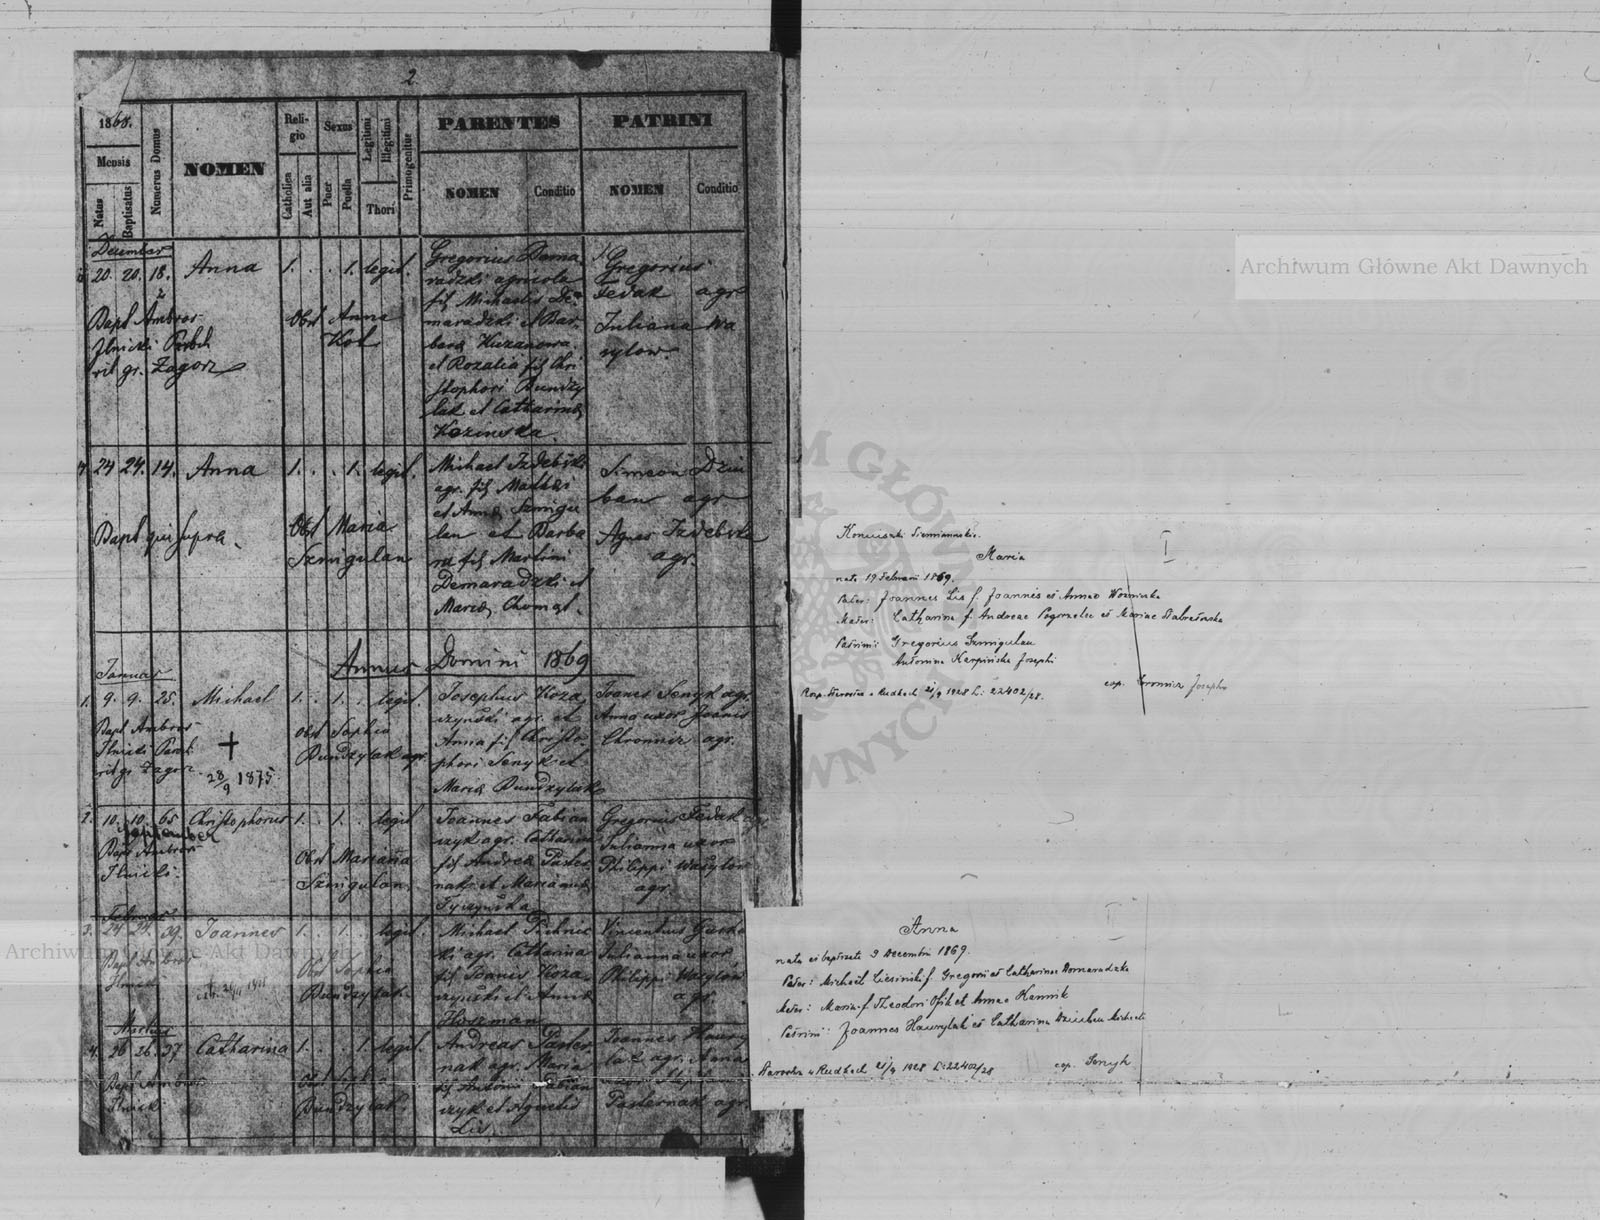 2
1868.
Mensis
Natus
Baptisatus
Numerus Domus
NOMEN
Reli-
gio
Catholica
Aut alia
Sexus
Puer
Puella
Legitimi
Illegitimi
Thori
Primogenitus
PARENTES
NOMEN
Conditio
PATRINI
NOMEN
Conditio
December
20. 20. 18. Anna 1. . . 1. legit.
Bapt Ambros
Ilnicki Paroch
rit gr. Zagorz
Obst Anna
Kot
Gregorius Dema
radzki agricola
fil Michaelis De
maradzki et Bar
bara
et Rozalia fil Chri
stophori Bundzy
lak et Catharina
Gregorius
Fedak agr
Juliana Wa
sylow.
24 24. 14. Anna 1. . . 1. legit.
Bapt qui supra.
Obst Maria
Szmigulan
Michael Izdebski
agr. fil Mathei
et Anna Szmigu
lan et Barba
ra fil Martini
Demaradzki et
Maria
Simeon Dziu
ban agr
Agnes Izdebska
agr.
Annus Domini 1869
Januar
1. 9. 9. 25. Michael 1. . 1. . legit.
Bapt Ambros
Ilnicki Paroch
rit gr Zagorz
28/9 1875
Obst Sophia
Bundzylak agr
Josephus Koza
czyński agr. et
Anna fil Christo
phori Senyk et
Maria Bundzylak
Joanes Senyk agr.
Anna uxor Joanis
Chromisz agr.
2. 10. 10. 65 Christophorus 1. . 1. . legit
September
Bapt Ambros
Ilnicki.
Obst Marianna
Szmigulan
Joannes Fabian
czyk agr. Catharina
fil Andrea Paster
nak et Marianna
Tyczyńska
Gregorius Fedak agr.
Julianna uxor
Philippi Wasylow
agr.
Februar
3. 24 24. 39. Joannes 1. . 1. . legit
Bapt Ambros
Ilnicki
Obst Sophia
Bundzylak
Michael
ki agr. Catharina
fil Joanis Koza
czyński et Anna
Hoszman
Vincentius
Julianna uxor
Philippi Wasylow
agr.
Martius
4. 26 26. 37 Catharina 1. . . 1. legit.
Bapt Ambros
Ilnicki
Obst
Bundzylak
Andreas Paster
nak agr. Maria
fil Antoni Fabian
czyk et Agnetis
Lis
Joannes Hawry
lak agr. Anna
Pasternak agr.
Archiwum Główne Akt Dawnych
Koniuszki Siemianowskie.
I
Maria
nata 19 Februarii 1869.
Pater: Joannes Lis f. Joannis et Annae Woźniczka
Mater: Catharina f. Andreae Pogorzelec et Mariae
Patrini: Gregorius Szmigulan
Antonina Karpińska Josephi
Rozp. Starostwa w Rudkach 21/9 1928 L: 22402/28.
I
Anna
nata et baptizata 9 Decembri 1869.
Pater: Michael Liciński f. Gregorii et Catharinae Domaradzka
Mater: Maria f. Theodori et Annae
Patrini: Joannes Hawrylak et Catharina Dziuban Michaelis
Starostwa w Rudkach 21/9 1928 L: 22402/28
coop. Senyk
Archiwum Główne Akt Dawnych